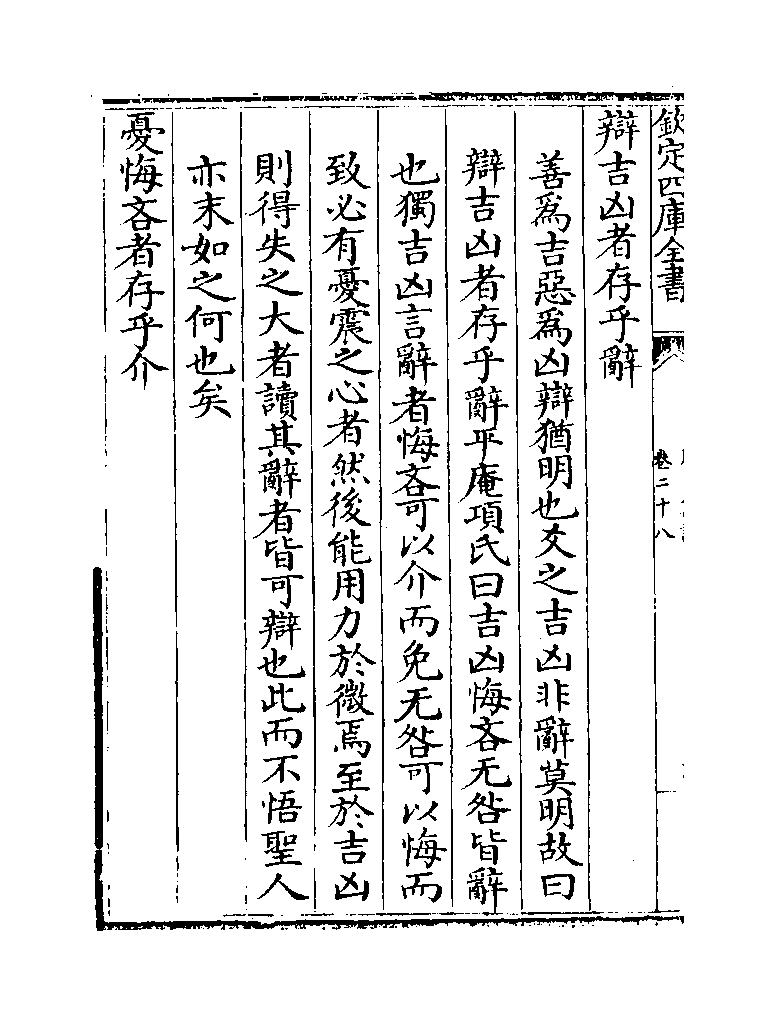 欽定四庫全書
卷二十八
辯吉凶者存乎辭
善爲吉惡爲凶辯猶明也爻之吉凶非辭莫明故曰
辯吉凶者存乎辭平庵項氏曰吉凶悔吝无咎皆辭
也獨吉凶言辭者悔吝可以介而免无咎可以悔而
致必有憂震之心者然後能用力於微焉至於吉凶
則得失之大者讀其辭者皆可辯也此而不悟聖人
亦末如之何也矣
憂悔吝者存乎介